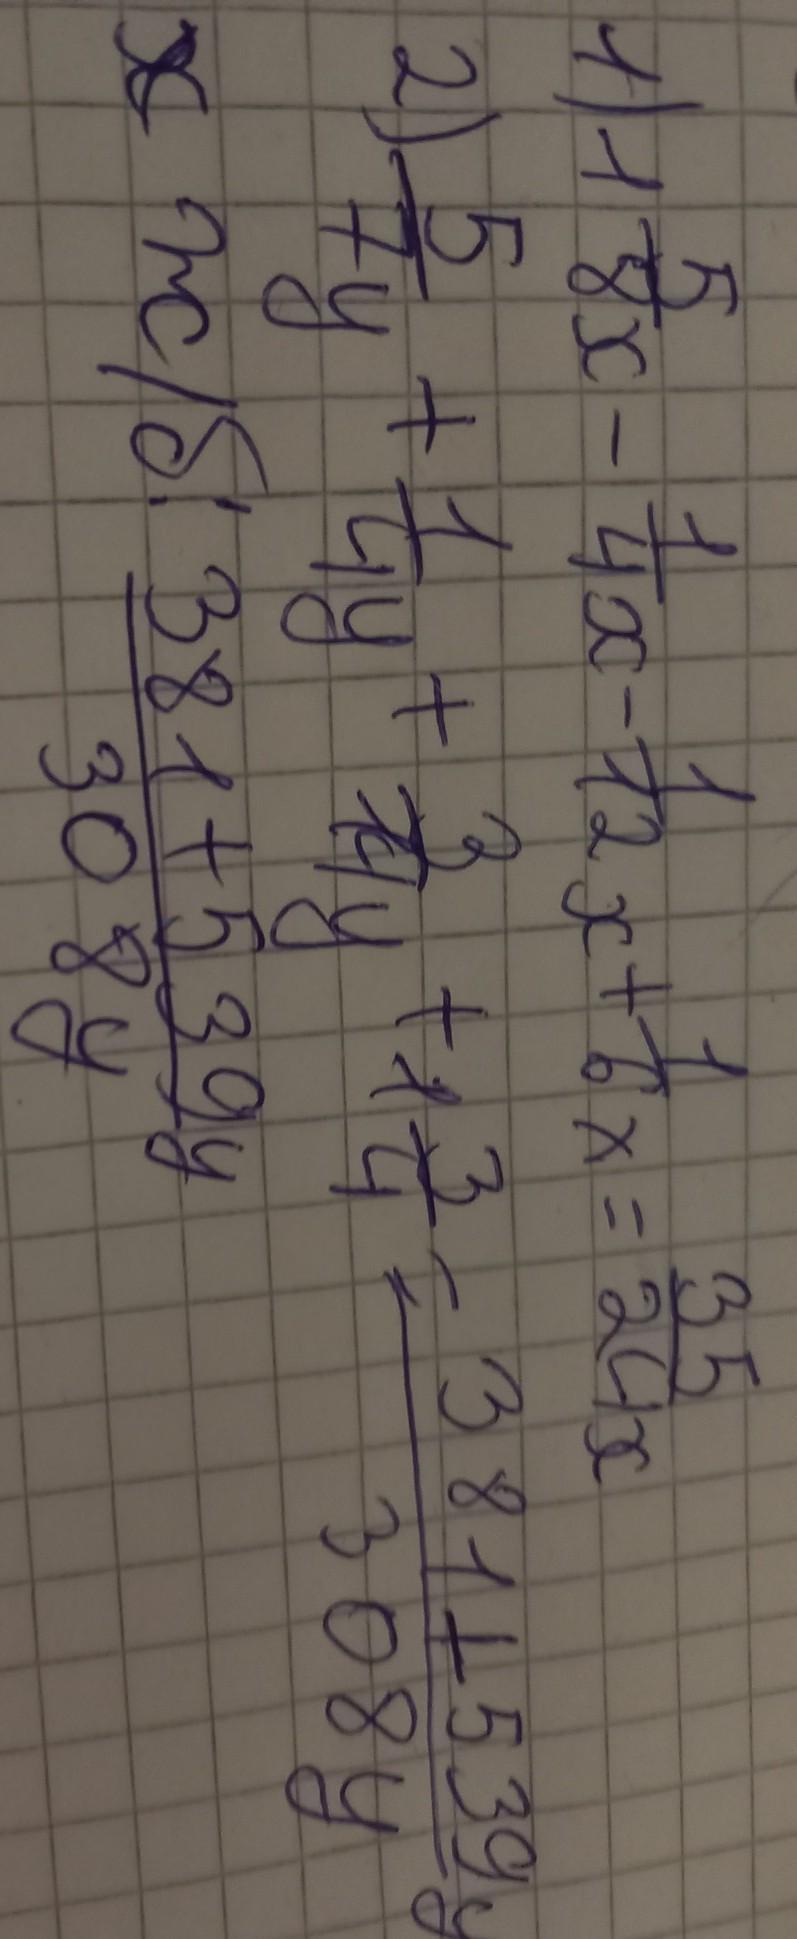 1) 1 5/8x - 1/4x - 1/12x + 1/6x = 35/24x
2) 5/7y + 1/4y + 3/14y + 1 3/4 = 381+539y/308y
381+539y/308y